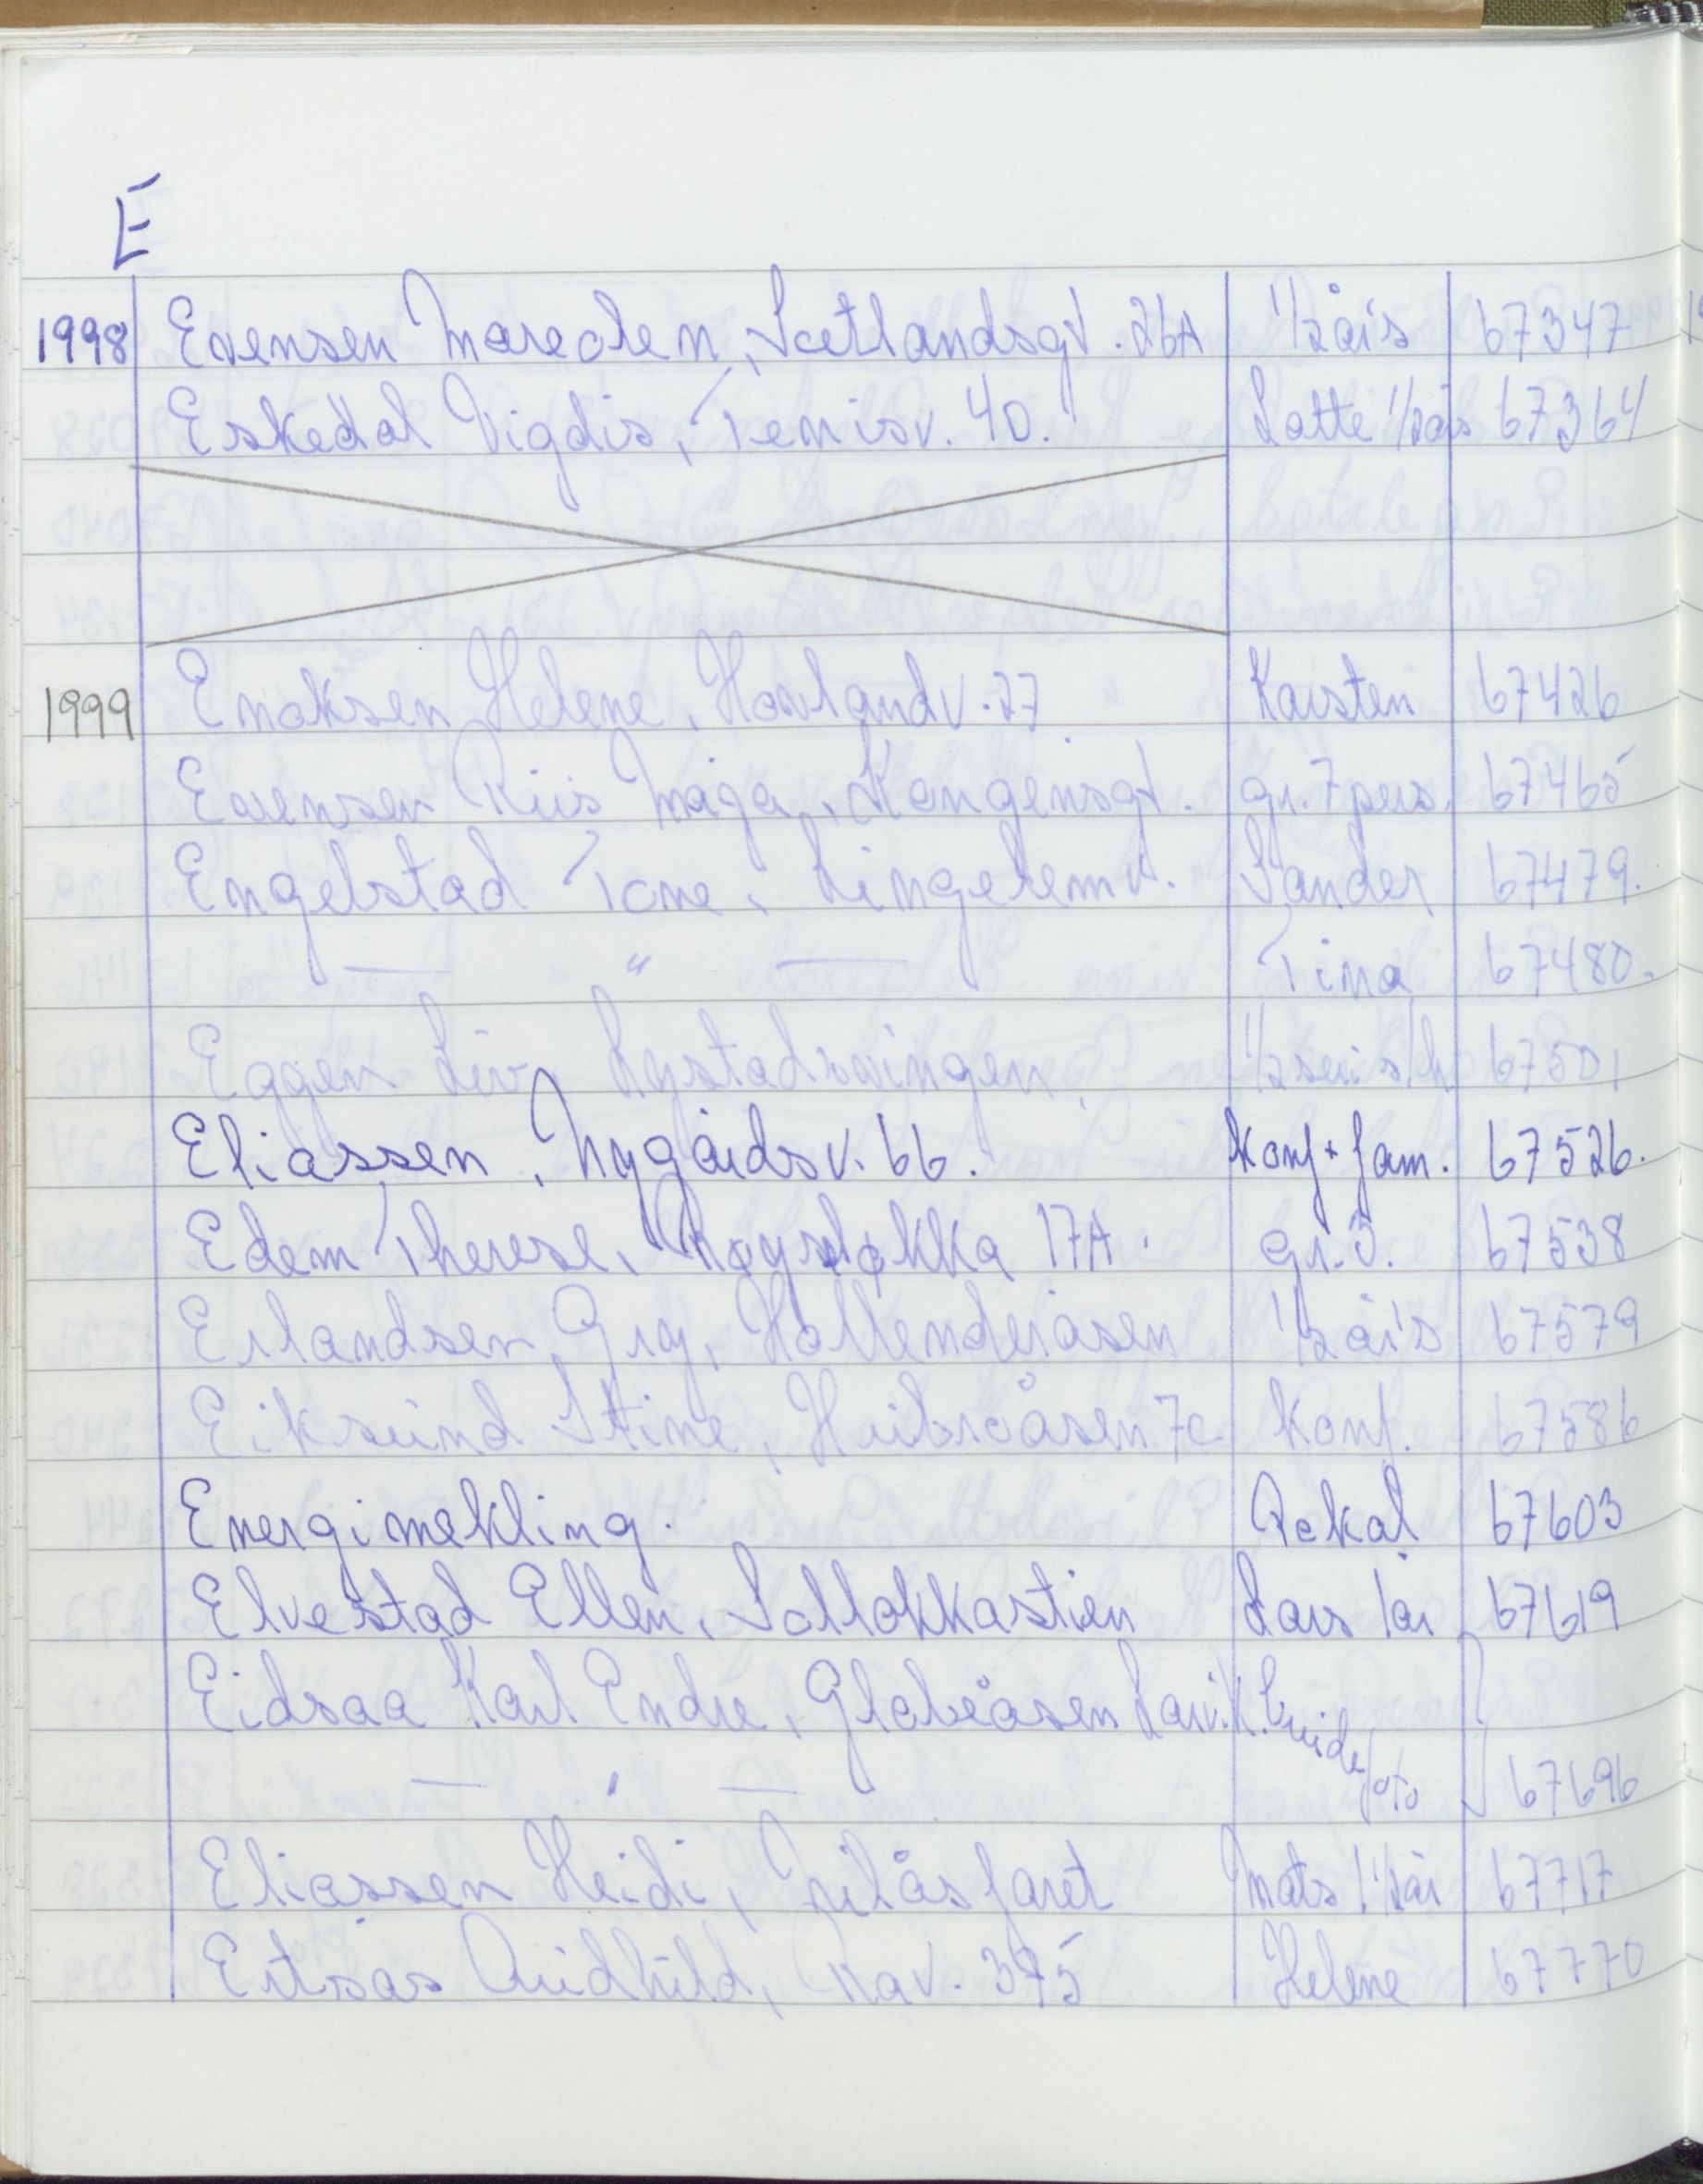 E
1998 Evensen Marech n, Scetlandsgt. 26A 1/2 års 67347
Eskedal Vigdis, Tenisv. 40. Lotte 1/2 års 67364
1999 Enoksen Helene, Hovlandv. 27 Karsten 67426
Evensen Riis Maja, Kongensgt. gr. 7 pers. 67465
Engelstad Tone, Lingelemv. Sander 67479.
— " — Tina 67480.
Eggen Liv, Nystadsvingen 67501
Eliassen, Nygårdsv. 66. Konf + fam. 67526.
Edem Therese, Røysløkka 17A. gr. 3. 67538
Erlandsen Gry, Hollenderåsen 1/2 års 67579
Eiksund Stine, Huibroåsen 7c Konf. 67586
Energimekling. Pokal 67603
Elvestad Ellen, Solløkkastien Lars 1 år 67619
Eidsaa Karl Endre, Globeåsen Larvik. brude
— " — foto 67696
Eliassen Heidi, Furåsfaret Mats 1 1/2 år 67717
Ertsas Audhild, Rav. 375 Helene 67770